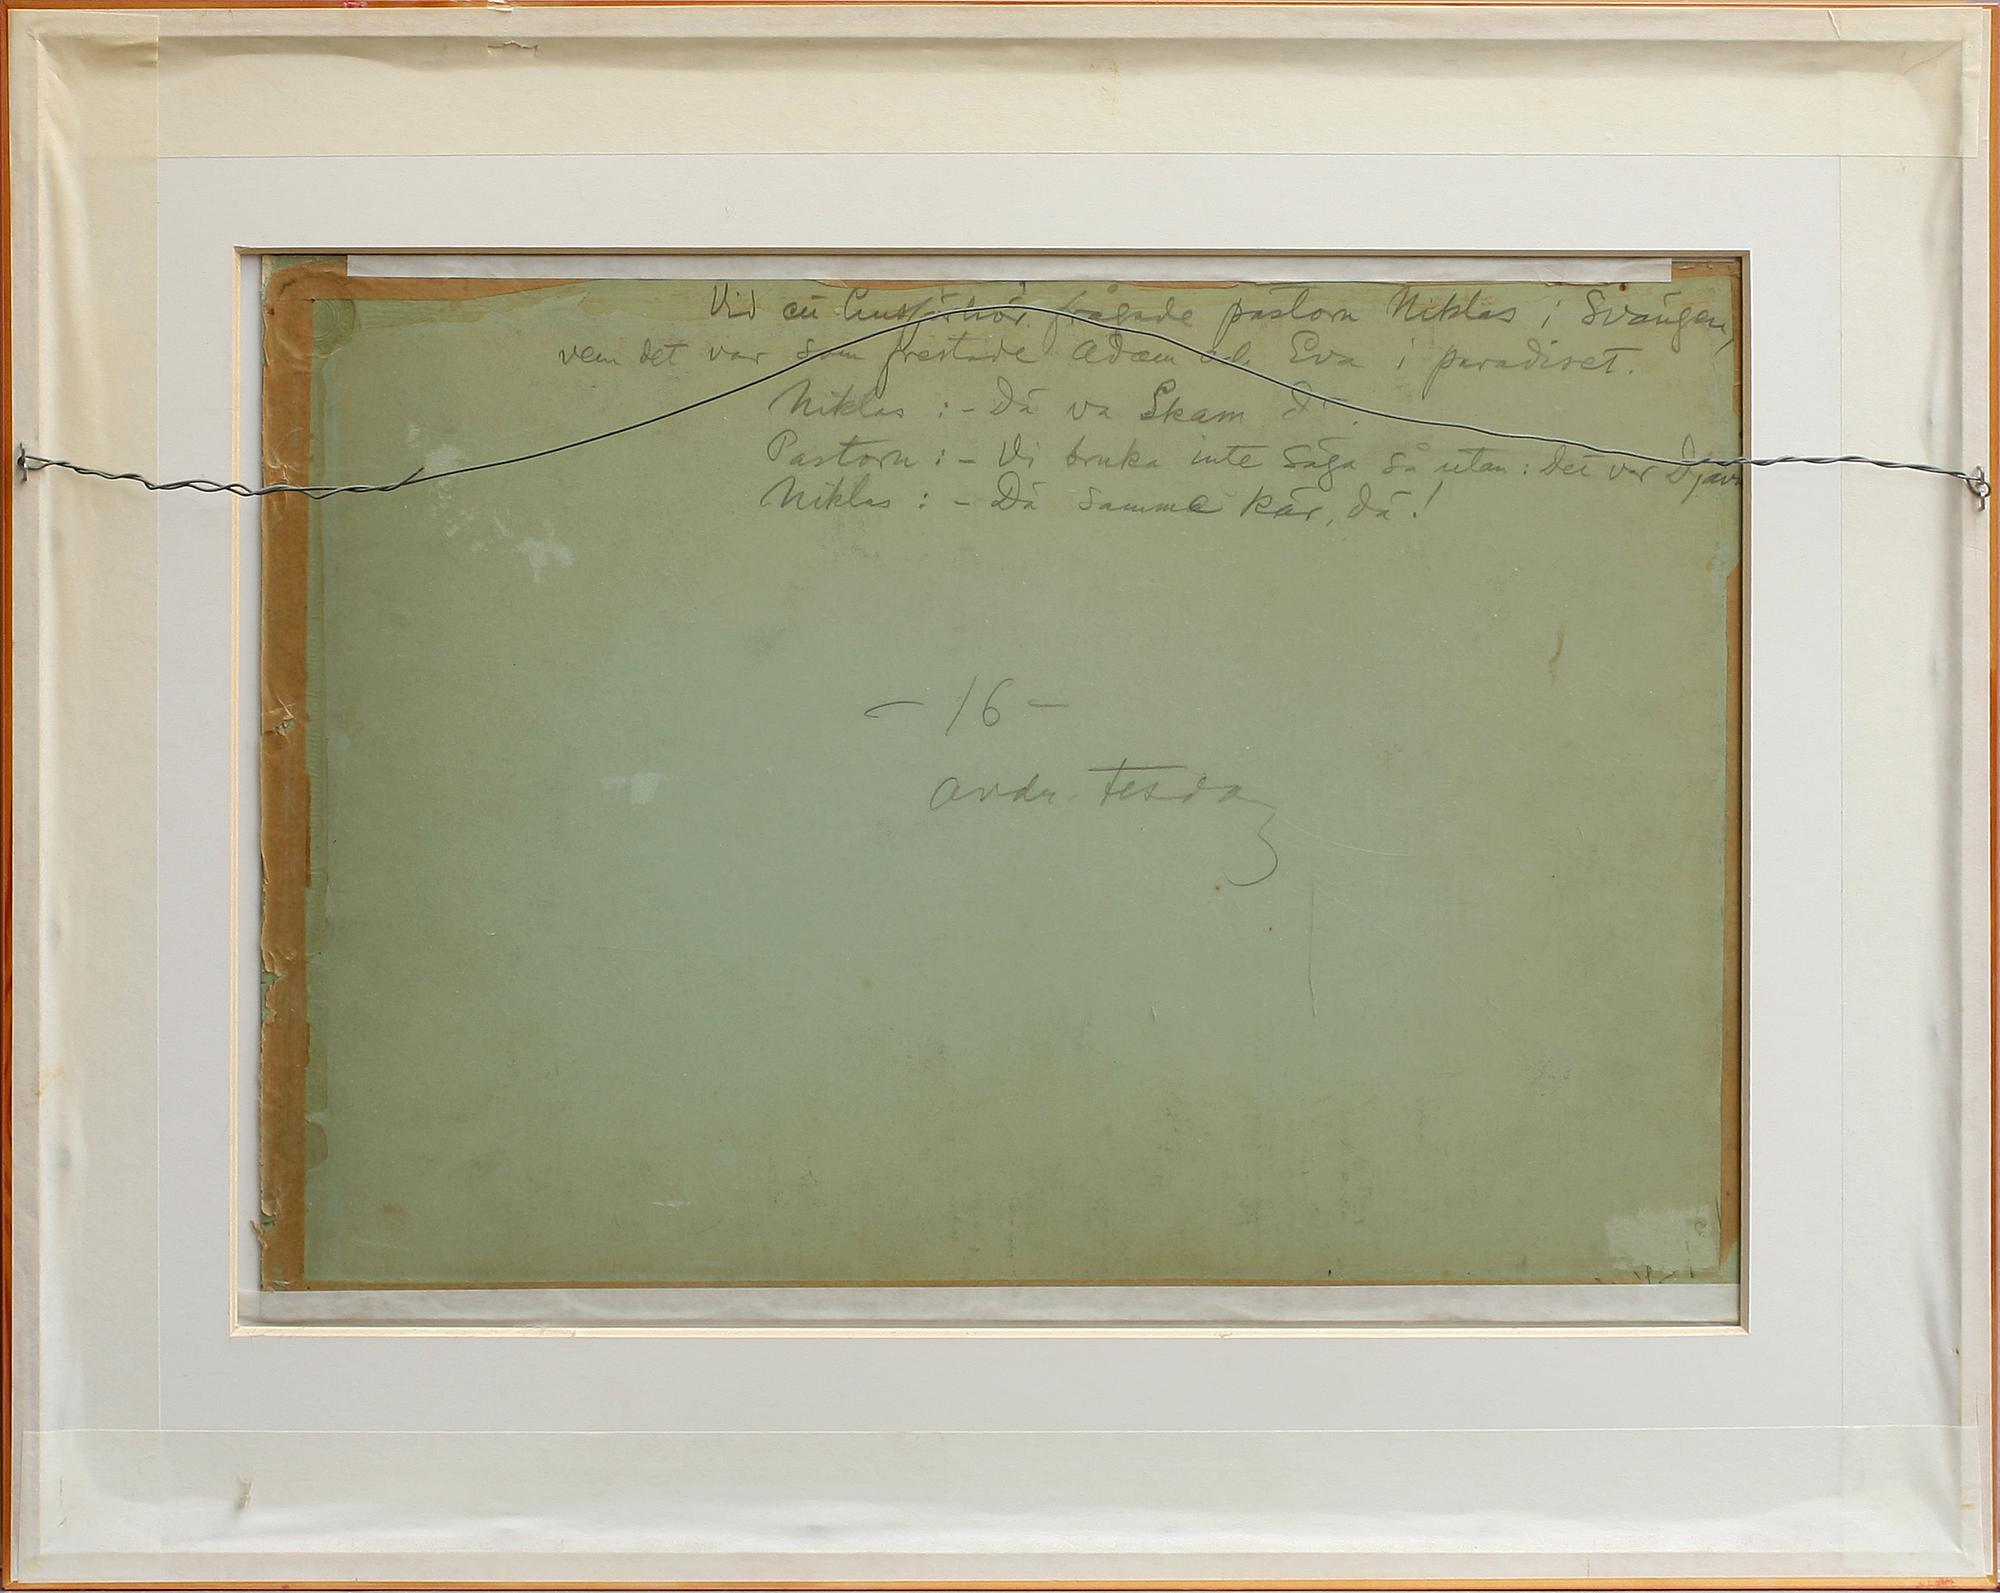 Vid ett husförhör frågade pastorn Niklas i Svängen,
vem det var som frestade Adam och Eva i paradiset.
Niklas : - Dä va Skam
Pastorn : - Vi bruka inte säga så utan : Det var Djäv
Niklas : - Dä samma kär, dä !
- 16 -